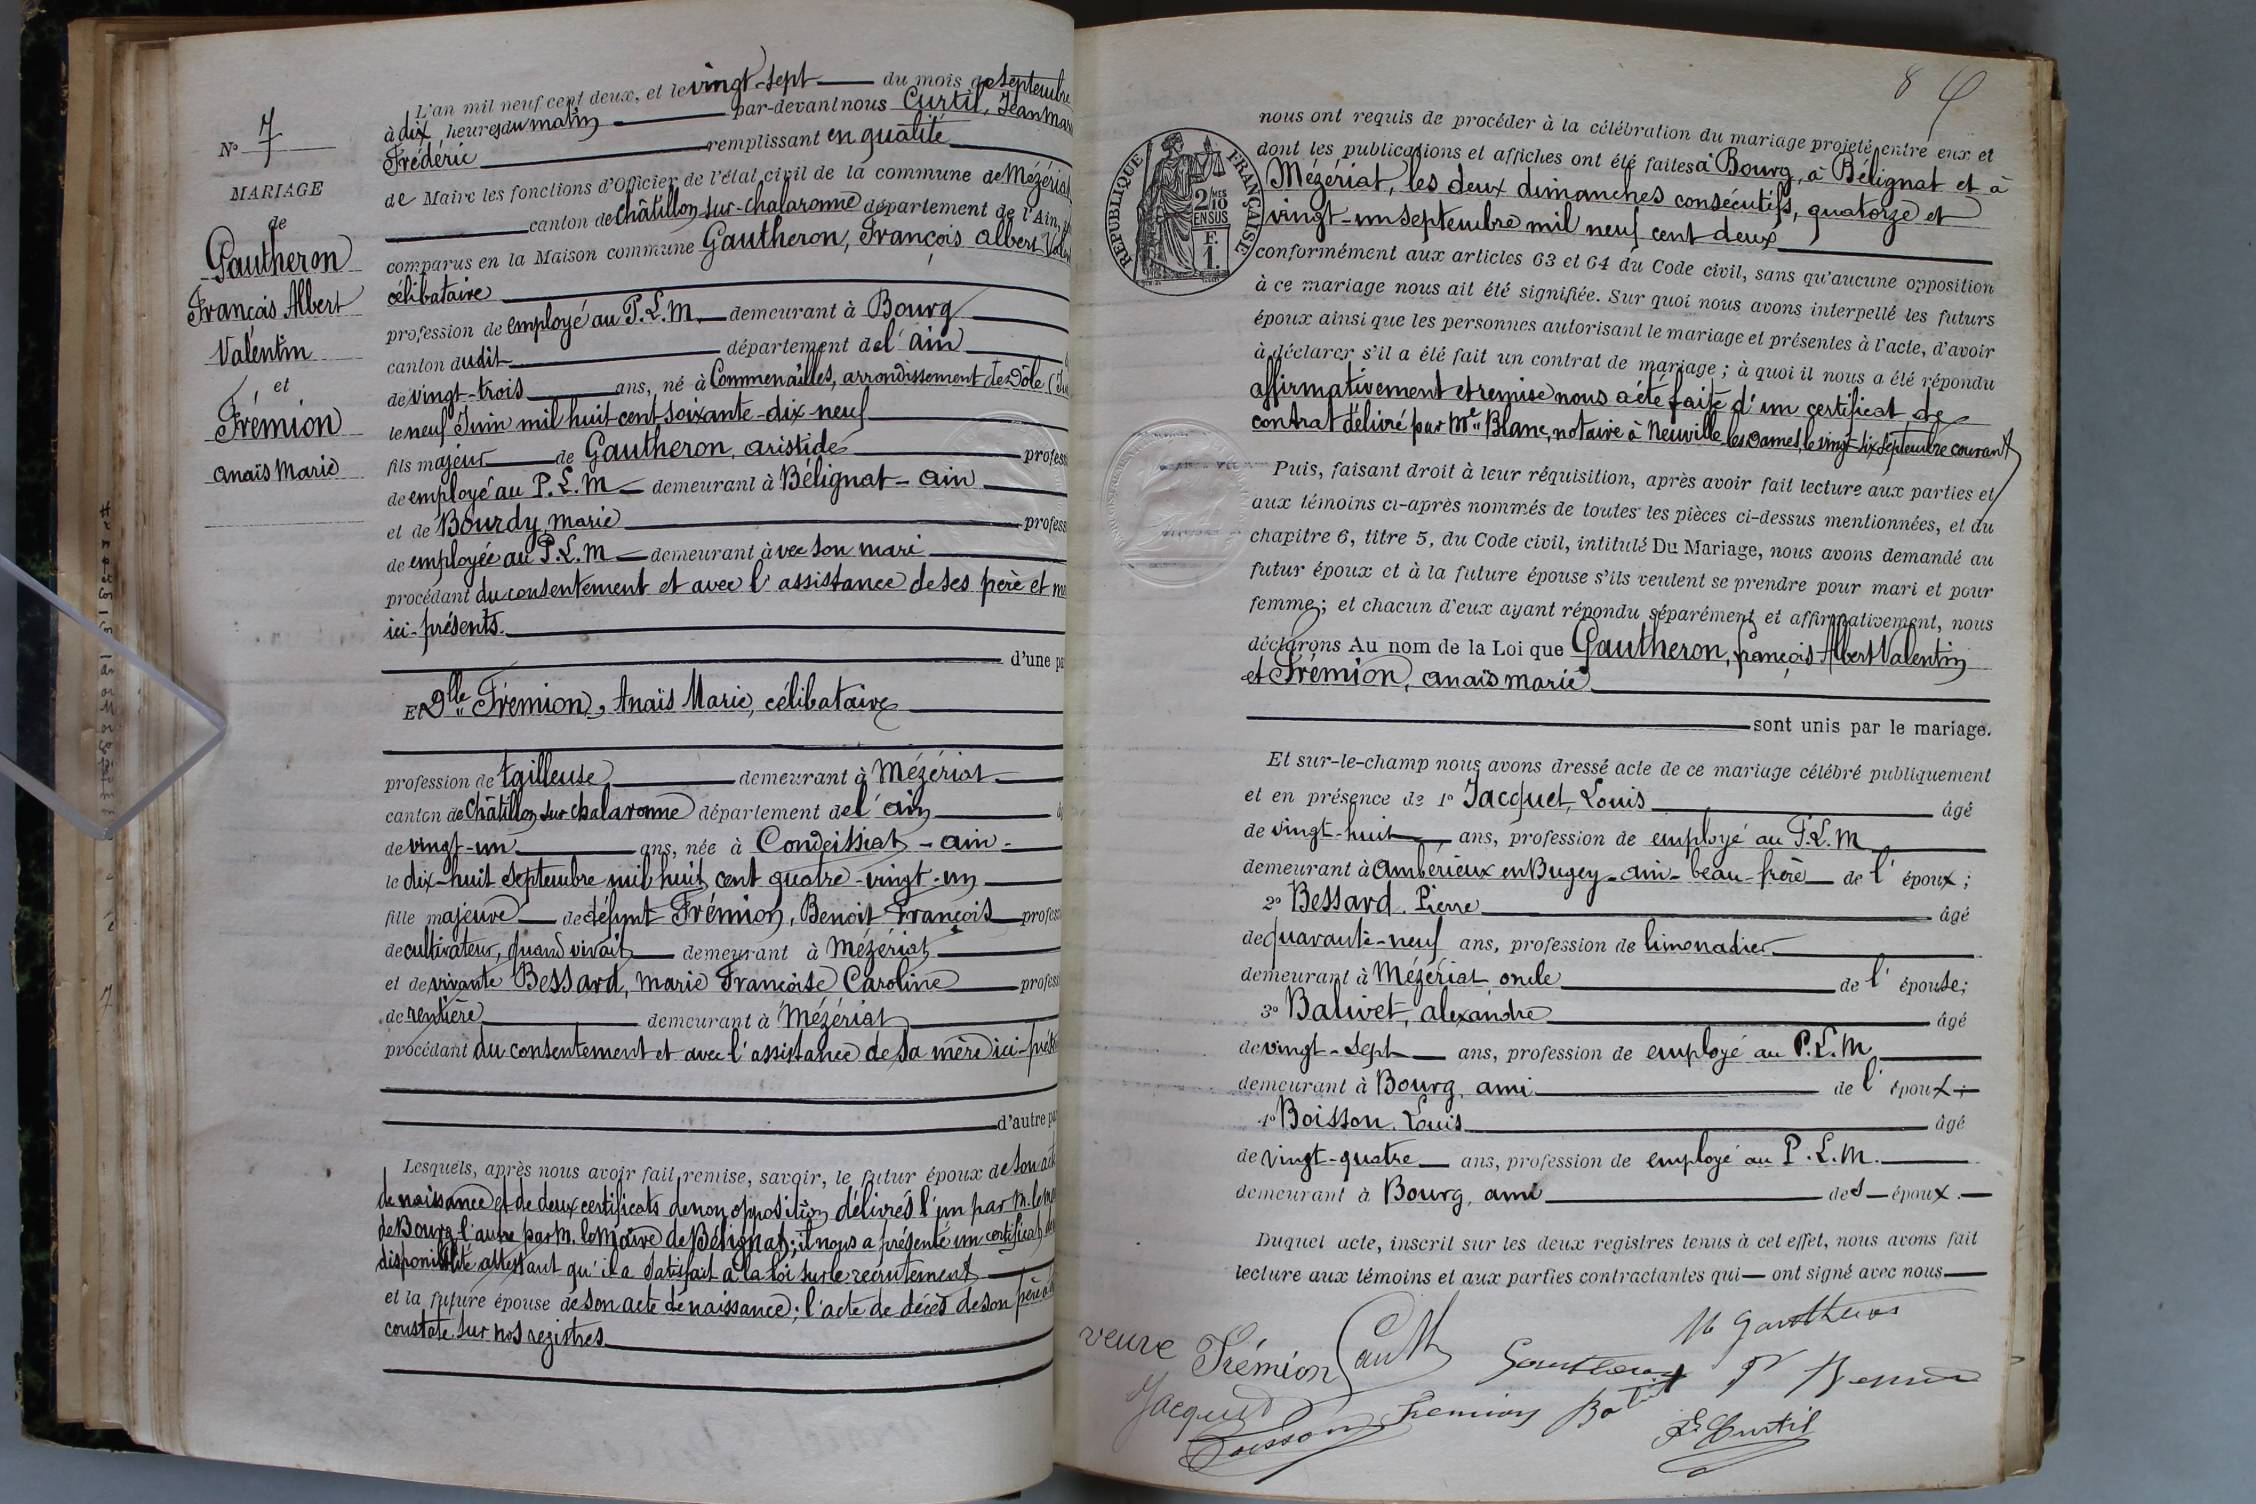 N° 7
MARIAGE
de
Gautheron
François Albert
Valentin
et
Frémion
Anaïs Marie
L'an mil neuf cent deux, et le vingt-sept du mois de septembre
à dix heures du matin par-devant nous Curtil, Jean Marie
Frédéric remplissant en qualité
de Maire les fonctions d'Officier de l'état civil de la commune de Mézériat
canton de Châtillon-sur-chalaronne département de l'Ain,
comparus en la Maison commune Gautheron, François Albert
célibataire
profession de employé au P.L.M. demeurant à Bourg
canton dudit département de l'ain
de vingt-trois ans, né à Commenailles, arrondissement de Dôle
le neuf Juin mil huit cent soixante-dix-neuf
fils majeur de Gautheron, aristide
de employé au P.L.M demeurant à Bélignat - ain
et de Bourdy marie
de employée au P.L.M demeurant à vec son mari
procédant du consentement et avec l'assistance de ses père et
ici-présents.
d'une
Et Dlle Frémion, Anaïs Marie, célibataire
profession de tailleuse demeurant à Mézériat
canton de Châtillon sur chalaronne département de l'ain
de vingt-un ans, née à Condeissiat - ain -
le dix-huit septembre mil huit cent quatre-vingt-un
fille majeure de défunt Frémion, Benoit François
de cultivateur, quand vivait demeurant à Mézériat
et de vivante Bessard, marie Françoise Caroline
de rentière demeurant à Mézériat
procédant du consentement et avec l'assistance de sa mère ici-
d'autre
Lesquels, après nous avoir fait remise, savoir, le futur époux de son
de naissance et de deux certificats de non opposition délivrés l'un par M. le
de Bourg l'autre par M. le Maire de Bélignat; il nous a présenté un certificat de
disponibilité attestant qu'il a satisfait à la loi sur le recrutement
et la future épouse de son acte de naissance; l'acte de décès de son père
constaté sur nos registres
8
RÉPUBLIQUE FRANÇAISE
2/10
EN SUS
F.
1.
nous ont requis de procéder à la célébration du mariage projeté entre eux et
dont les publications et affiches ont été faites à Bourg, à Bélignat et à
Mézériat, les deux dimanches consécutifs, quatorze et
vingt-un septembre mil neuf cent deux
conformément aux articles 63 et 64 du Code civil, sans qu'aucune opposition
à ce mariage nous ait été signifiée. Sur quoi nous avons interpellé les futurs
époux ainsi que les personnes autorisant le mariage et présentes à l'acte, d'avoir
à déclarer s'il a été fait un contrat de mariage; à quoi il nous a été répondu
affirmativement et remise nous a été faite d'un certificat de
contrat délivré par Me Blanc, notaire à Neuville les Dames, le vingt-six septembre courant
Puis, faisant droit à leur réquisition, après avoir fait lecture aux parties et
aux témoins ci-après nommés de toutes les pièces ci-dessus mentionnées, et du
chapitre 6, titre 5, du Code civil, intitulé Du Mariage, nous avons demandé au
futur époux et à la future épouse s'ils veulent se prendre pour mari et pour
femme; et chacun d'eux ayant répondu séparément et affirmativement, nous
déclarons Au nom de la Loi que Gautheron, françois Albert Valentin
et Frémion, anaïs marie
sont unis par le mariage.
Et sur-le-champ nous avons dressé acte de ce mariage célébré publiquement
et en présence de 1° Jacquet, Louis âgé
de vingt-huit ans, profession de employé au P.L.M
demeurant à ambérieux en Bugey - ain - beau-frère de l'époux;
2° Bessard. Pierre âgé
de quarante-neuf ans, profession de limonadier
demeurant à Mézériat, oncle de l'épouse;
3° Balivet, alexandre âgé
de vingt-sept ans, profession de employé au P.L.M
demeurant à Bourg, ami de l'époux;
4° Boisson. Louis âgé
de vingt-quatre ans, profession de employé au P.L.M.
demeurant à Bourg, ami des époux.
Duquel acte, inscrit sur les deux registres tenus à cet effet, nous avons fait
lecture aux témoins et aux parties contractantes qui ont signé avec nous
veuve Frémion Gautheron
Jacquet Boisson Fremion
F. Curtil